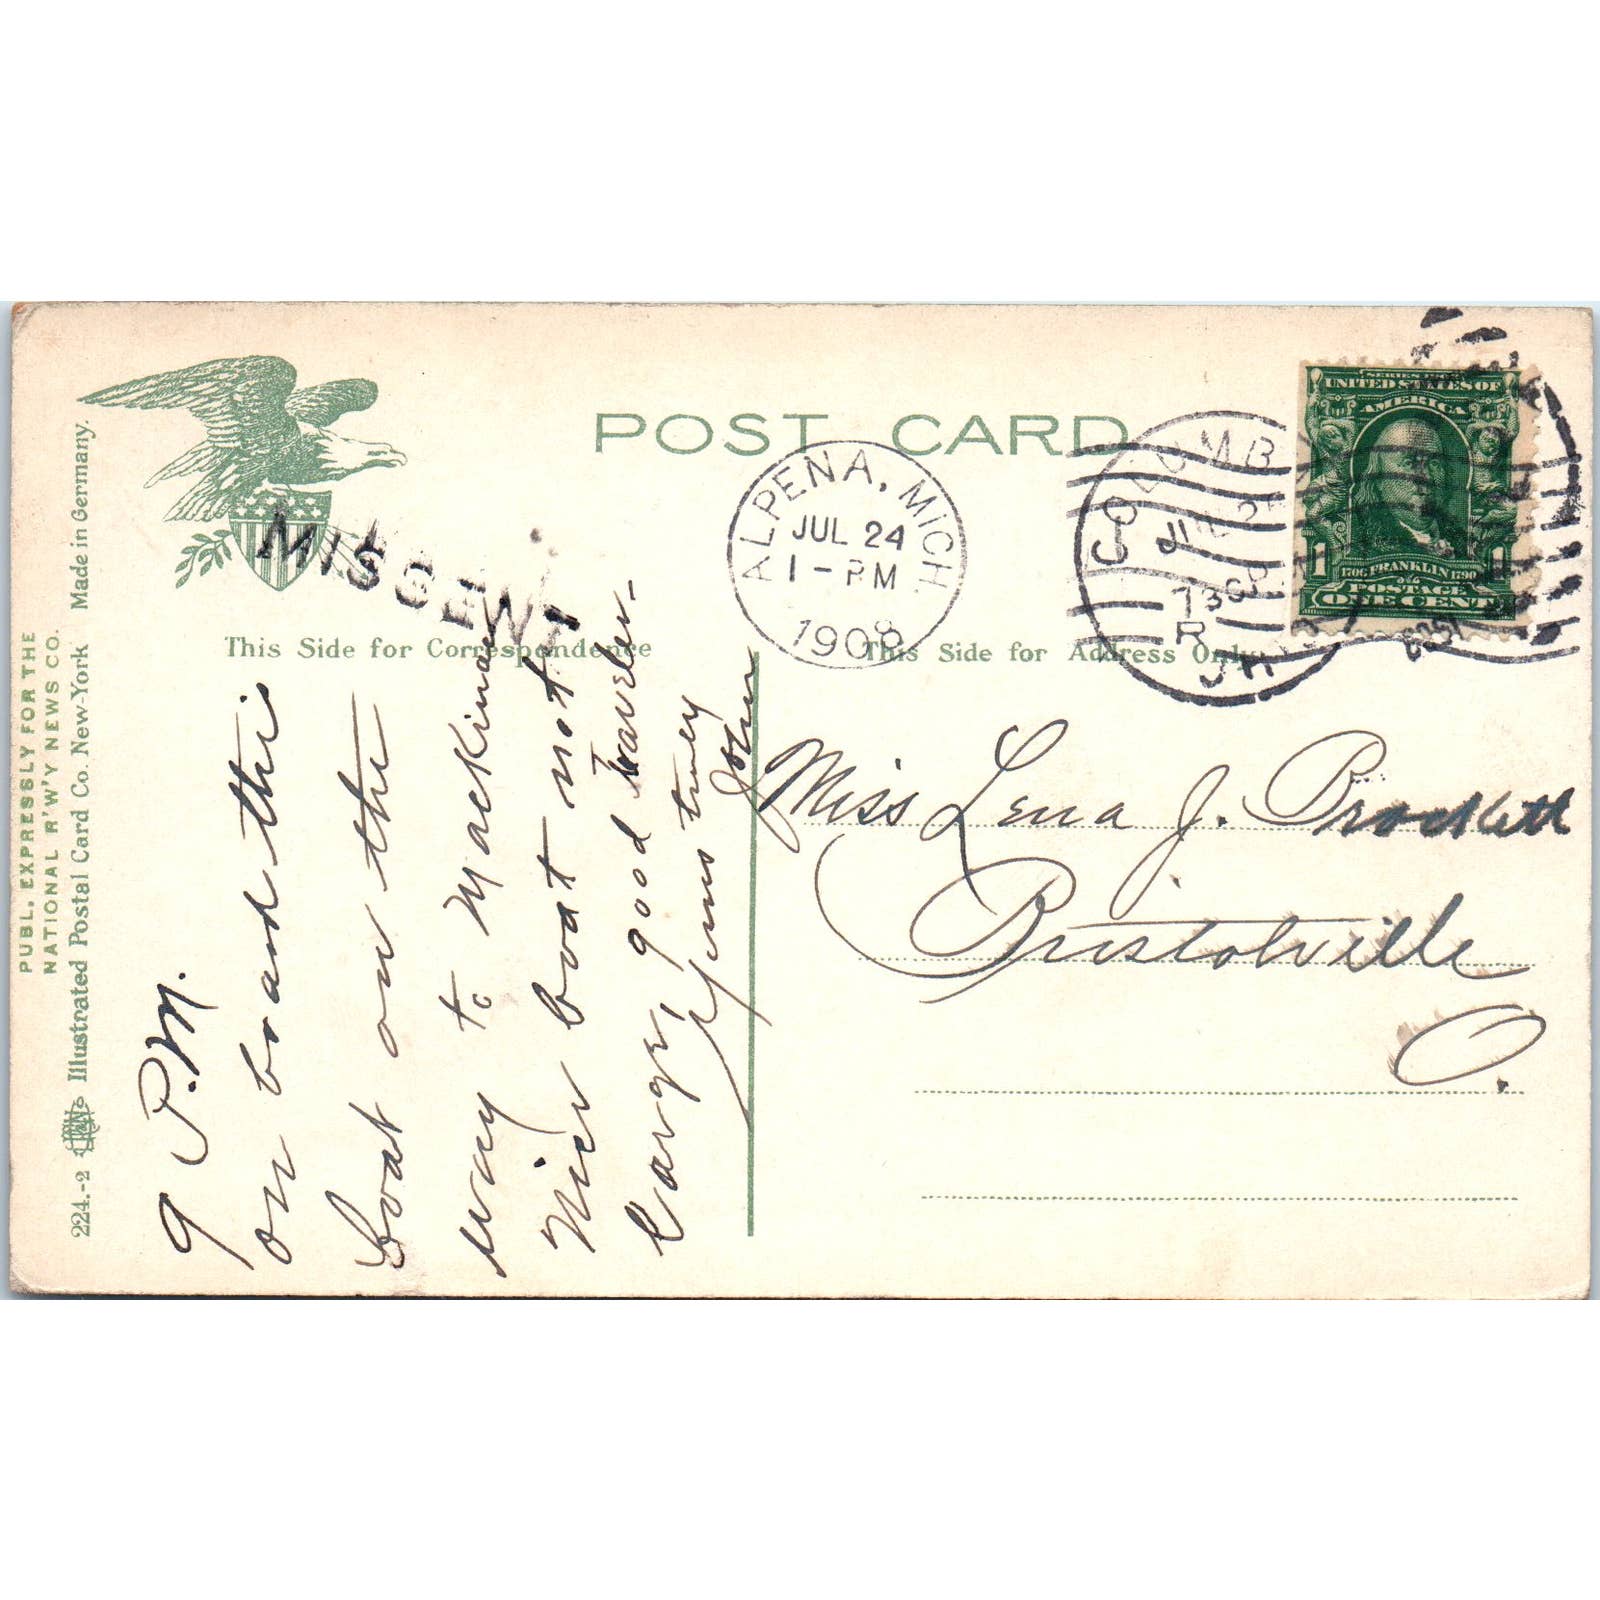 POST CARD
ALPENA, MICH.
JUL 24
1-PM
1908
COLUMB
730P
R
SERIES 1902
UNITED STATES OF
AMERICA
1 1
1706 FRANKLIN 1790
POSTAGE
ONE CENT
MISSENT
This Side for Correspondence
This Side for Address Only
PUBL. EXPRESSLY FOR THE
NATIONAL R'W'Y NEWS CO.
224.-2 Illustrated Postal Card Co. New-York Made in Germany.
9 P.M.
on board this
boat on the
way to Mackinac
Nice boat not
large, good traveler.
Yours truly
John
Miss Lena J. Brockett
Bristolville
O.